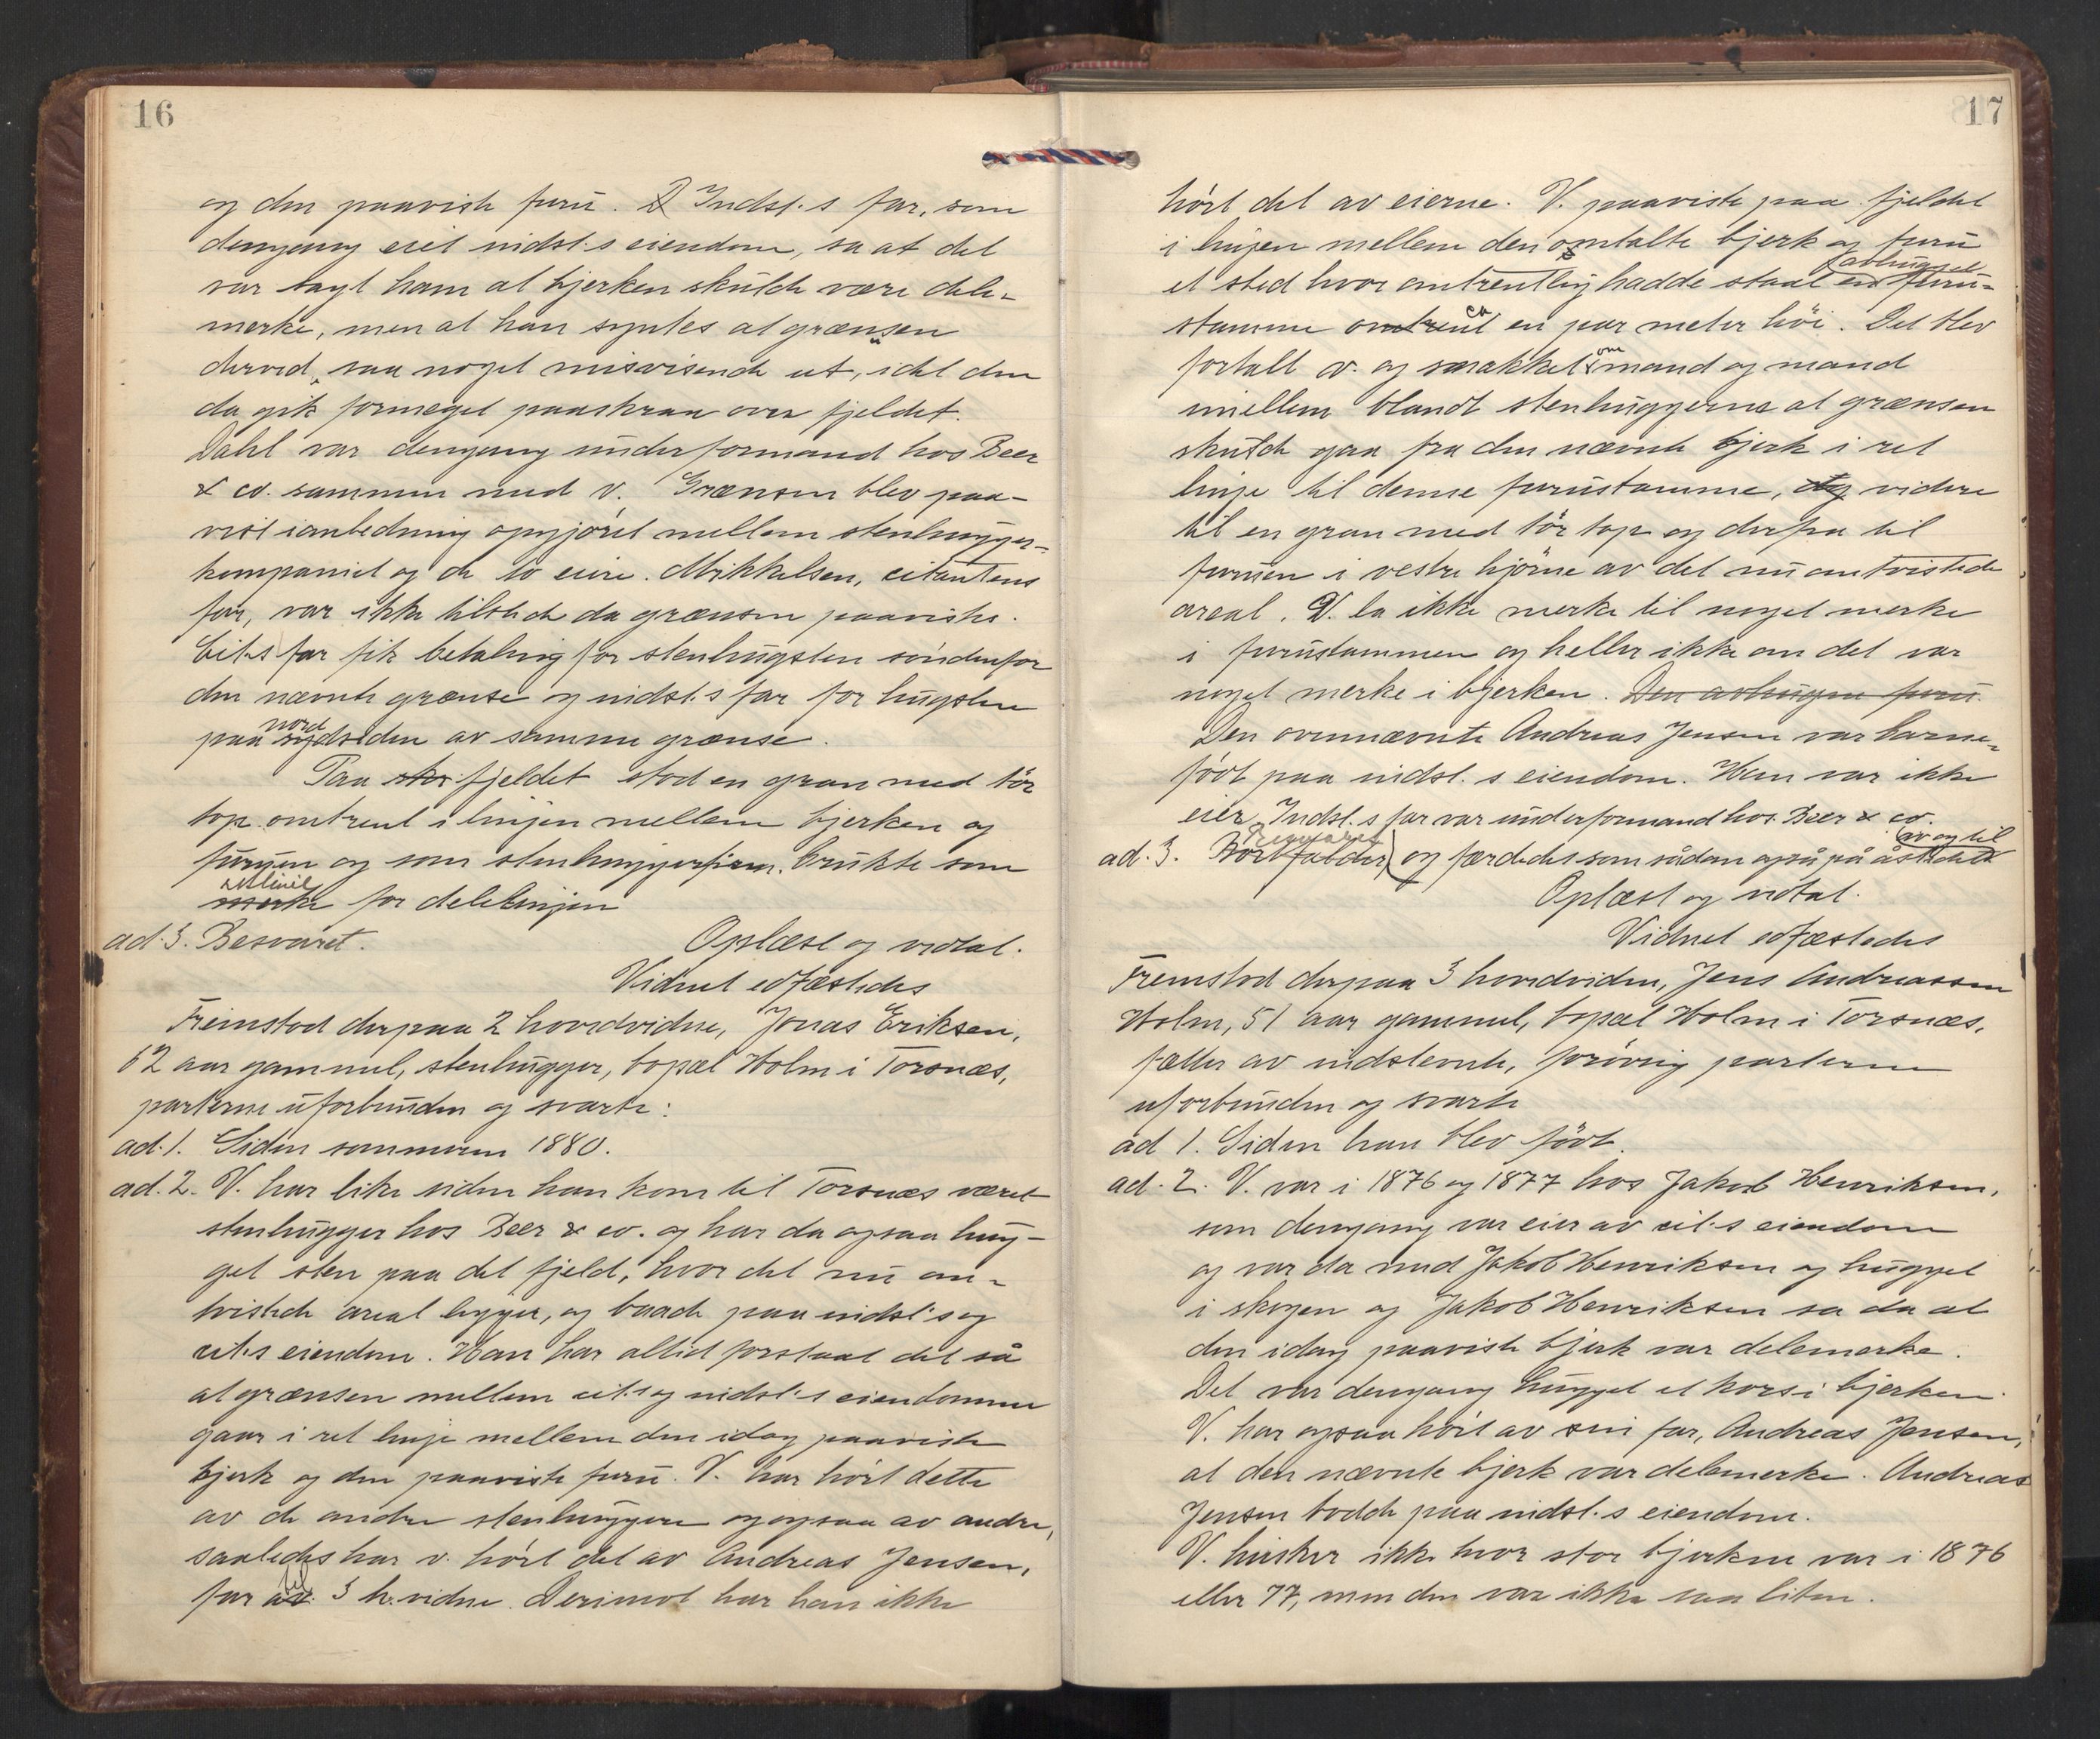 16
og den paaviste furu. Indst.s far, som
dengang eiet indst.s eiendom, sa at det
var sagt ham at bjerken skulde være dele-
merke, men at han syntes at grænsen
derved saa noget misvisende ut, idet den
da gik formeget paaskraa over fjeldet.
Dahl var dengang underformand hos Beer
& co. sammen med v. Grænsen blev paa-
vist i anledning opgjöret mellem stenhugger-
kompaniet og de to eiere. Mikkelsen, citantens
far, var ikke tilstede da grænsen paavistes.
Cit.s far fik betaling for stenhugsten söndenfor
den nævnte grænse og indst.s far for hugsten
paa nordsiden av samme grænse.
Paa fjeldet stod en gran med tör
top omtrent i linjen mellem bjerken og
furuen og som stenhuggerfirm. brukte som
for delelinjen
ad. 3. Besvaret. Oplæst og vedtat.
Vidnet edfæstedes
Fremstod derpaa 2 hovedvidne, Jonas Eriksen,
62 aar gammel, stenhugger, bopæl Holm i Torsnæs,
parterne uforbunden og svarte:
ad. 1. Siden sommeren 1880.
ad. 2. V. har like siden han kom til Torsnæs været
stenhugger hos Beer & co. og har da ogsaa hug-
get sten paa det fjeld, hvor det nu om-
tvistede areal ligger, og baade paa indst.s og
cit.s eiendom. Han har altid forstaat det så
at grænsen mellem cit.s og indst.s eiendomme
gaar i ret linje mellem den idag paaviste
bjerk og den paaviste furu. V. har hört dette
av de andre stenhuggere og ogsaa av andre,
saaledes har v. hört det av Andreas Jensen,
far til 3 h.vidne. Derimot har han ikke
17
hört det av eierne. V. paaviste paa fjeldet
i linjen mellem den omtalte bjerk og furu
et sted hvor omtrentlig hadde staat en avhugget furu-
stamme omtrent ca en par meter höi. Det blev
fortalt v. og snakket om mand og mand
imellem blandt stenhuggerne at grænsen
skulde gaa fra den nævnte bjerk i ret
linje til denne furustamme, og videre
til en gran med tör top og derfra til
furuen i vestre hjörne av det nu omtvistede
areal. V. la ikke merke til noget merke
i furustammen og heller ikke om det var
noget merke i bjerken. Den avhugne furu.
Den ovennævnte Andreas Jensen var barne-
födt paa indst.s eiendom. Han var ikke
eier. Indst.s far var underformand hos Beer & co.
ad. 3. Bortfalder, Besvaret og færdedes som sådan også på åstedet av og til
Oplæst og vedtat.
Vidnet edfæstedes
Fremstod derpaa 3 hovedvidne, Jens Andreassen
Holm, 51 aar gammel, bopæl Holm i Torsnæs,
fætter av indstevnte, forövrig parterne
uforbunden og svarte
ad 1. Siden han blev födt.
ad. 2. V. var i 1876 og 1877 hos Jakob Henriksen,
som dengang var eier av cit.s eiendom
og var da med Jakob Henriksen og hugget
i skogen og Jakob Henriksen sa da at
den idag paaviste bjerk var delemerke.
Det var dengang hugget et kors i bjerken.
V. har ogsaa hört av sin far, Andreas Jensen,
at den nævnte bjerk var delemerke. Andreas
Jensen bodde paa indst.s eiendom.
V. husker ikke hvor stor bjerken var i 1876
eller 77, men den var ikke saa liten.